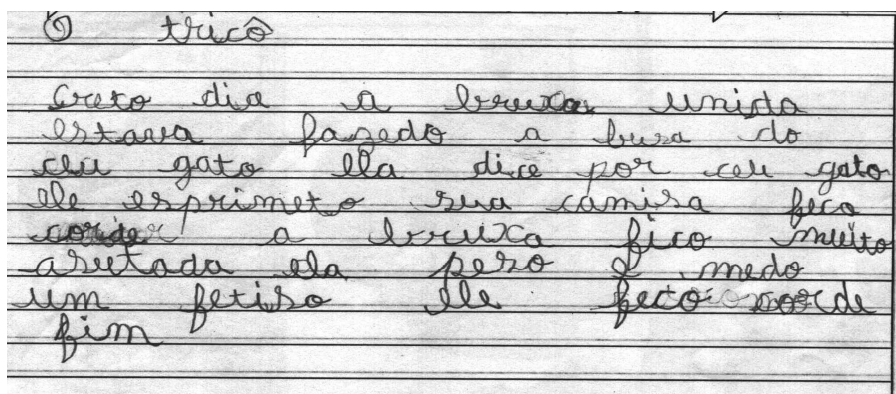 O tricô
Creto dia a bruxa unida
estava fazedo a busa do
ceu gato ela dice por ceu gato
ele esprimeto sua camisa feco
corde a bruxa fico muito
asutada ela peso e medo
um fetiso ele feco corde
fim